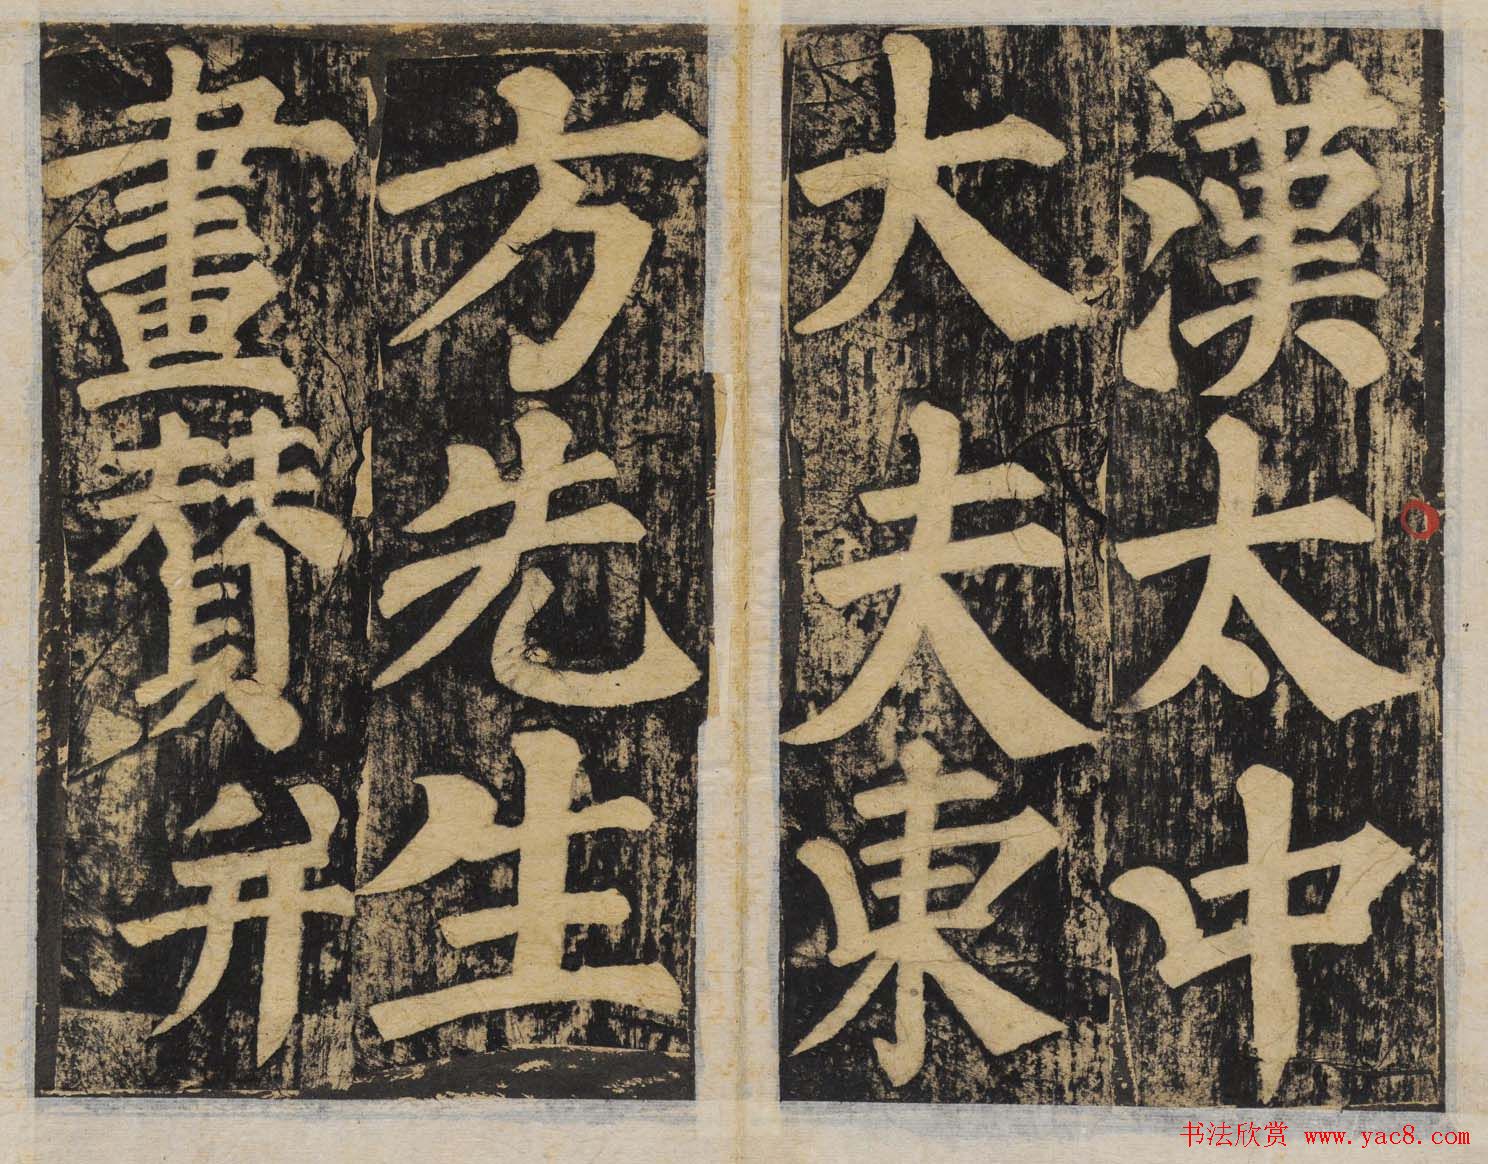 漢太中
大夫東
方先生
畫赞并
书法欣赏 www.yac8.com